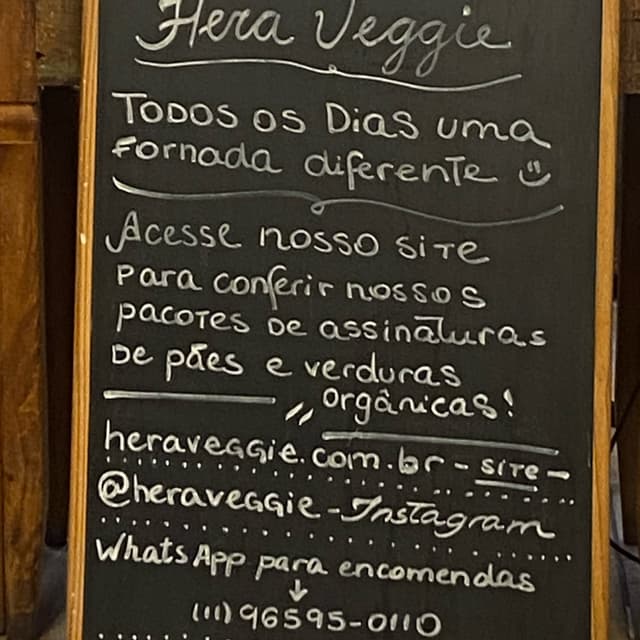 Hera Veggie
Todos os Dias uma
fornada diferente
Acesse nosso site
para conferir nossos
pacotes de assinaturas
de pães e verduras
orgânicas!
heraveggie.com.br - site -
@heraveggie - Instagram
WhatsApp para encomendas
(11) 96595-0110